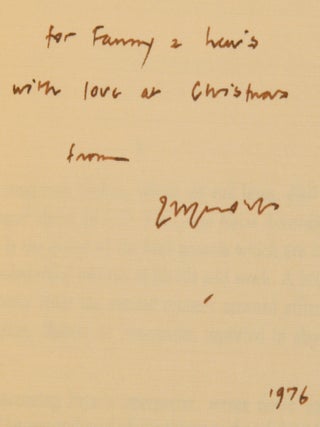 for Fanny & Lewis
with love at Christmas
from
1976